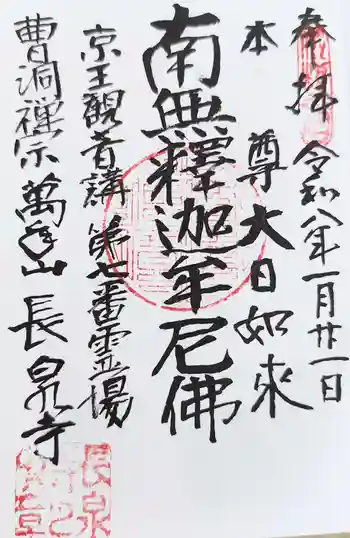 奉拝 令和八年一月廿一日
本尊大日如來
南無釋迦牟尼佛
京王觀音講第七番霊場
曹洞禅宗萬年山長泉寺